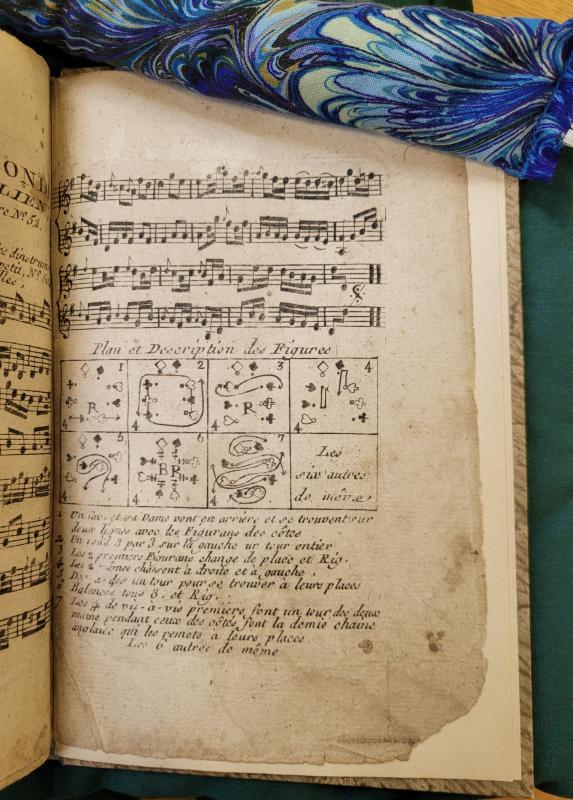 OND
LIEN
re No. 52.
petit, No.
Plan et Description des Figures
1
2
3
4
R
R
4
4
4
4
5
6
7
B R
4
4
4
Les
six autres
de même,
1 Un Cav. et sa Dame vont en arrière et se trouvent sur
deux lignes avec les Figurans des côtés
2 Un rond 3 par 3 sur la gauche ur tour entier
3 Les 2 premiers Figurans change de place et Rig.
4 Les 2 mêmes chassent à droite et à gauche,
5 Dos à dos un tour pour se trouver à leurs places
6 Balancés tous 8, et Rig.
7 Les 4 de vis-à-vis premiers font un tour des deux
mains pendant ceux des côtés font la demie chaine
anglaise qui les remets à leurs places.
Les 6 autres de même